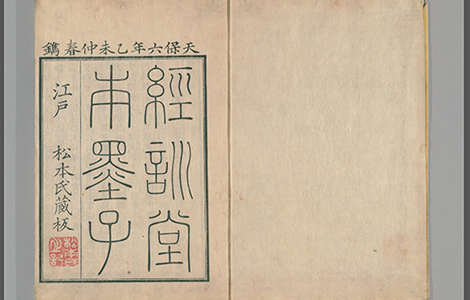 天保六年乙未仲春鐫
經訓堂
本墨子
江戸 松本氏藏板